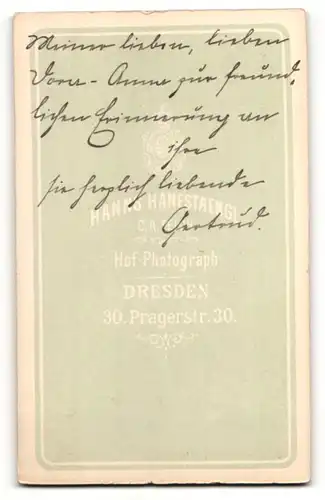 Meiner lieben, lieben
Dora-Anna zur freund,
lichen Erinnerung an
ihre
sie herzlich liebende
Gertrud.
HANNS HANFSTAENGL
Hof-Photograph
DRESDEN
30. Pragerstr. 30.